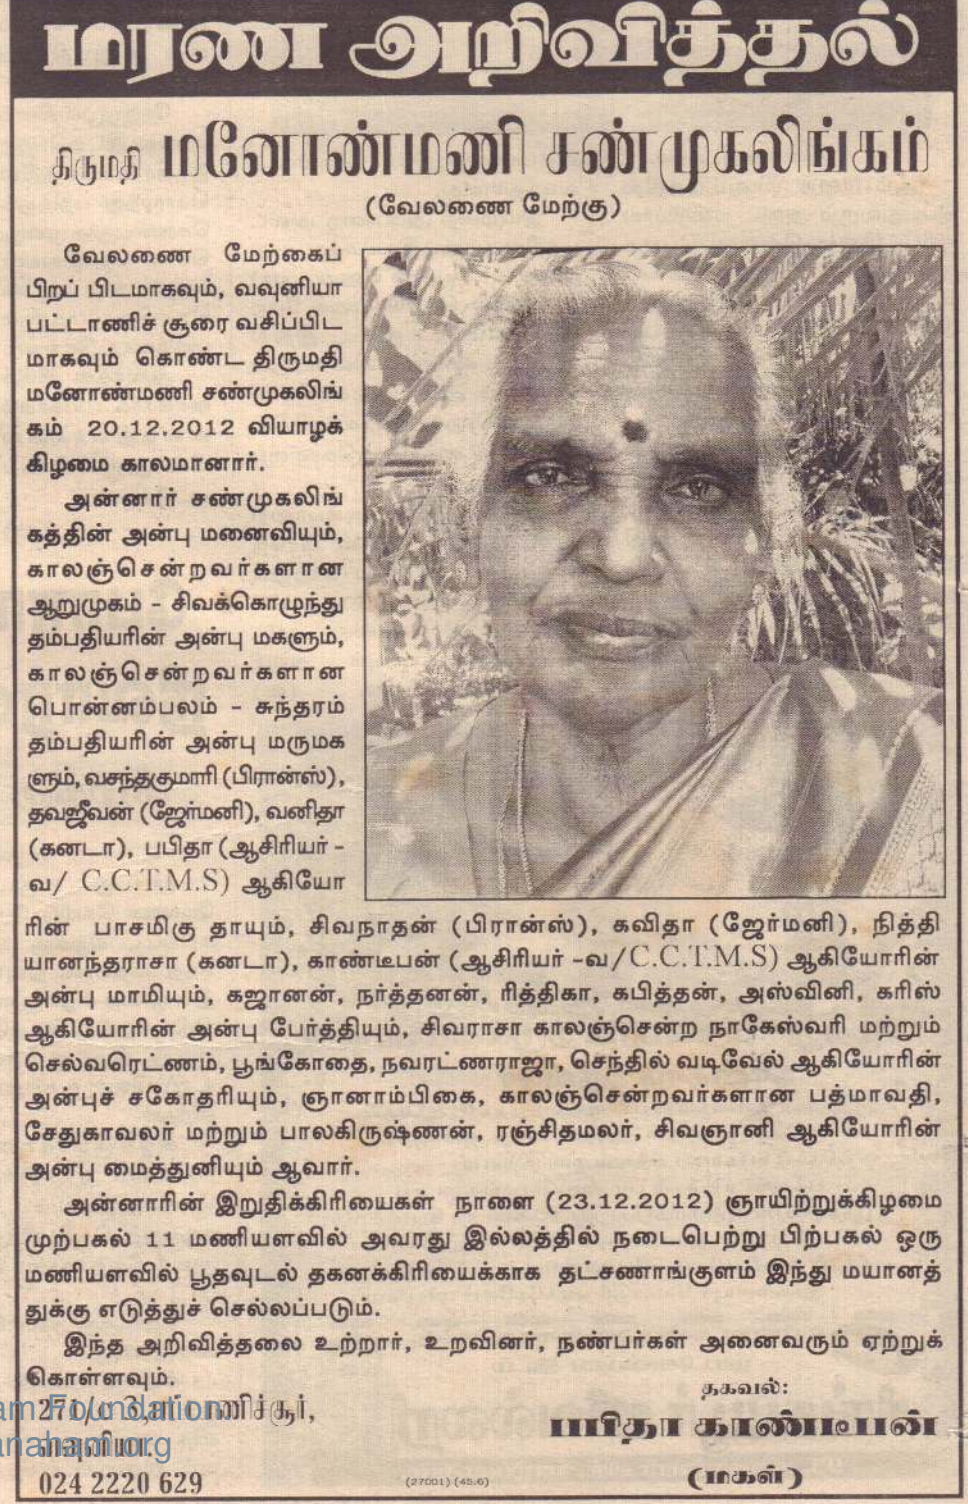 மரண அறிவித்தல்
திருமதி மனோண்மணி சண்முகலிங்கம்
(வேலணை மேற்கு)
வேலணை மேற்கைப்
பிறப் பிடமாகவும், வவுனியா
பட்டாணிச் சூரை வசிப்பிட
மாகவும் கொண்ட திருமதி
மனோண்மணி சண்முகலிங்
கம் 20.12.2012 வியாழக்
கிழமை காலமானார்.
அன்னார் சண்முகலிங்
கத்தின் அன்பு மனைவியும்,
காலஞ்சென்றவர்களான
ஆறுமுகம் - சிவக்கொழுந்து
தம்பதியரின் அன்பு மகளும்,
காலஞ்சென்றவர்களான
பொன்னம்பலம் - சுந்தரம்
தம்பதியரின் அன்பு மருமக
ளும், வசந்தகுமாரி (பிரான்ஸ்),
தவஜீவன் (ஜேர்மனி), வனிதா
(கனடா), பபிதா (ஆசிரியர் -
வ/ C.C.T.M.S) ஆகியோ
ரின் பாசமிகு தாயும், சிவநாதன் (பிரான்ஸ்), கவிதா (ஜேர்மனி), நித்தி
யானந்தராசா (கனடா), காண்டீபன் (ஆசிரியர் -வ/C.C.T.M.S) ஆகியோரின்
அன்பு மாமியும், கஜானன், நர்த்தனன், ரித்திகா, கபித்தன், அஸ்வினி, கரிஸ்
ஆகியோரின் அன்பு பேர்த்தியும், சிவராசா காலஞ்சென்ற நாகேஸ்வரி மற்றும்
செல்வரெட்ணம், பூங்கோதை, நவரட்ணராஜா, செந்தில் வடிவேல் ஆகியோரின்
அன்புச் சகோதரியும், ஞானாம்பிகை, காலஞ்சென்றவர்களான பத்மாவதி,
சேதுகாவலர் மற்றும் பாலகிருஷ்ணன், ரஞ்சிதமலர், சிவஞானி ஆகியோரின்
அன்பு மைத்துனியும் ஆவார்.
அன்னாரின் இறுதிக்கிரியைகள் நாளை (23.12.2012) ஞாயிற்றுக்கிழமை
முற்பகல் 11 மணியளவில் அவரது இல்லத்தில் நடைபெற்று பிற்பகல் ஒரு
மணியளவில் பூதவுடல் தகனக்கிரியைக்காக தட்சணாங்குளம் இந்து மயானத்
துக்கு எடுத்துச் செல்லப்படும்.
இந்த அறிவித்தலை உற்றார், உறவினர், நண்பர்கள் அனைவரும் ஏற்றுக்
கொள்ளவும்.
தகவல்:
பபிதா காண்டீபன்
(மகள்)
பட்டாணிச்சூர்,
வவுனியா.
024 2220 629
(27001) (45.6)
am Foundation
anaham.org